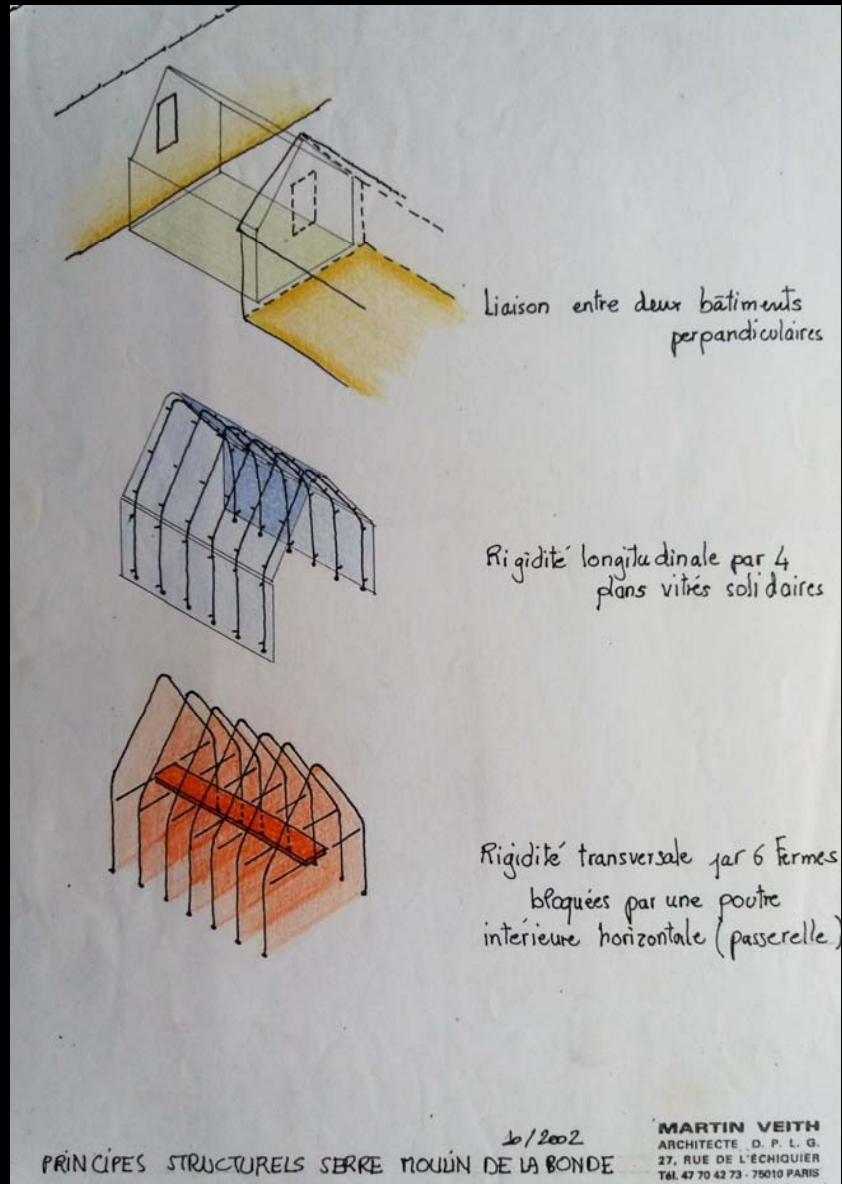 Liaison entre deux bâtiments
perpandiculaires
Rigidité longitudinale par 4
plans vitrés solidaires
Rigidité transversale par 6 Fermes
bloquées par une poutre
intérieure horizontale (passerelle)
10/2002
PRINCIPES STRUCTURELS SERRE MOULIN DE LA BONDE
MARTIN VEITH
ARCHITECTE D. P. L. G.
27, RUE DE L'ÉCHIQUIER
Tél. 47 70 42 73 - 75010 PARIS